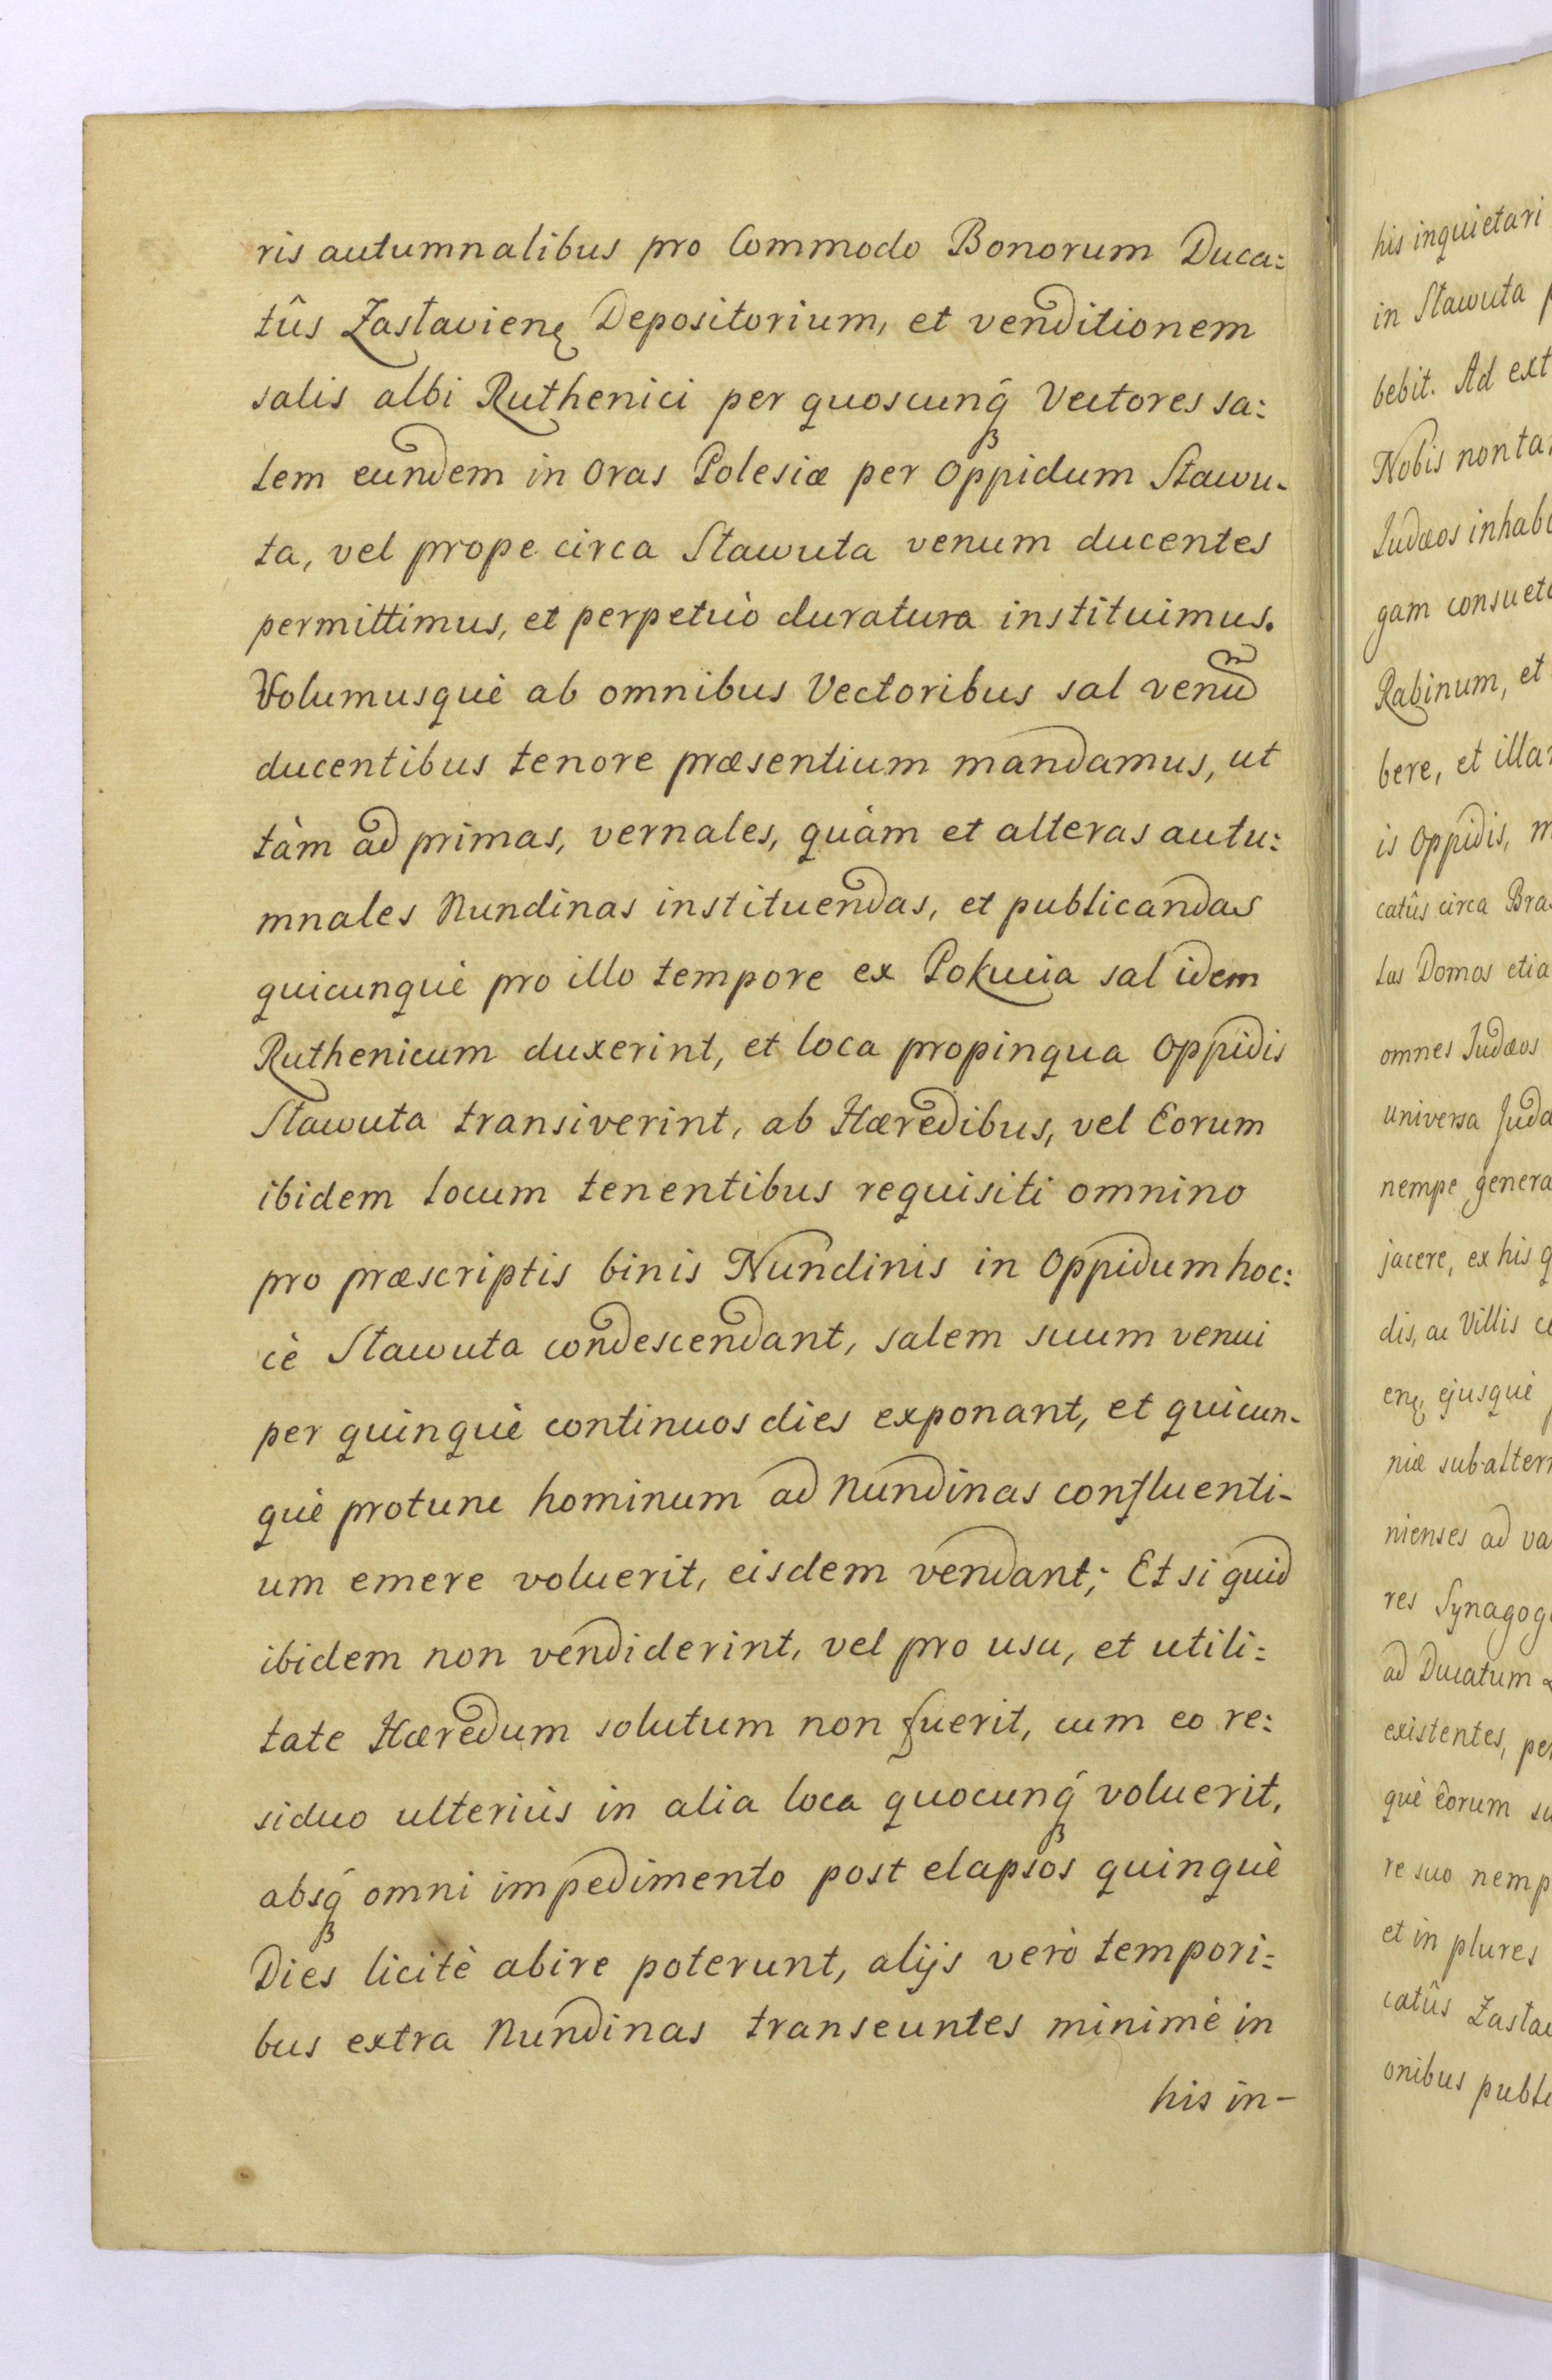 ris autumnalibus pro Commodo Bonorum Duca:
tûs Zaslavienę Depositorium, et venditionem
salis albi Ruthenici per quoscunq́ꝫ Vectores sa:
lem eundem in Oras Polesiæ per Oppidum Sławu-
ta, vel prope circa Sławuta venum ducentes
permittimus, et perpetuò duratura instituimus.
Volumusquè ab omnibus Vectoribus sal venum̃
ducentibus tenore præsentium mandamus, ut
tàm ad primas, vernales, quàm et alteras autu:
mnales Nundinas instituendas, et publicandas
quicunquè pro illo tempore ex Pokucia sal idem
Ruthenicum duxerint, et loca propinqua Oppidis
Sławuta transiverint, ab Hæredibus, vel Eorum
ibidem locum tenentibus requisiti omnino
pro præscriptis binis Nundinis in Oppidum hoc:
cè Sławuta condescendant, salem suum venui
per quinquè continuos dies exponant, et quicun-
què protunc hominum ad Nundinas confluenti-
um emere voluerit, eisdem vendant; Et si quid
ibidem non vendiderint, vel pro usu, et utili:
tate Hæredum solutum non fuerit, cum eo re:
siduo ulteriùs in alia loca quocunq́ꝫ voluerit,
absq́ꝫ omni impedimento post elapsos quinquè
Dies licitè abire poterunt, alijs verò tempori:
bus extra Nundinas transeuntes minimè in
his in-
his inquietari
in Sławuta
bebit. Ad ext
Nobis non ta
Judæos inhab
gam consuet
Rabinum, et
bere, et illa
is Oppidis, m
catûs circa Bra
las Domos etia
omnes Judæos
universa Juda
nempe genera
jacere, ex his q
dis, ac Villis c
enę, ejusquè
niæ subaltern
nienses ad va
res Synagog
ad Ducatum
existentes, per
què Eorum su
re suo nemp
et in plures
catûs Zasla
onibus publi